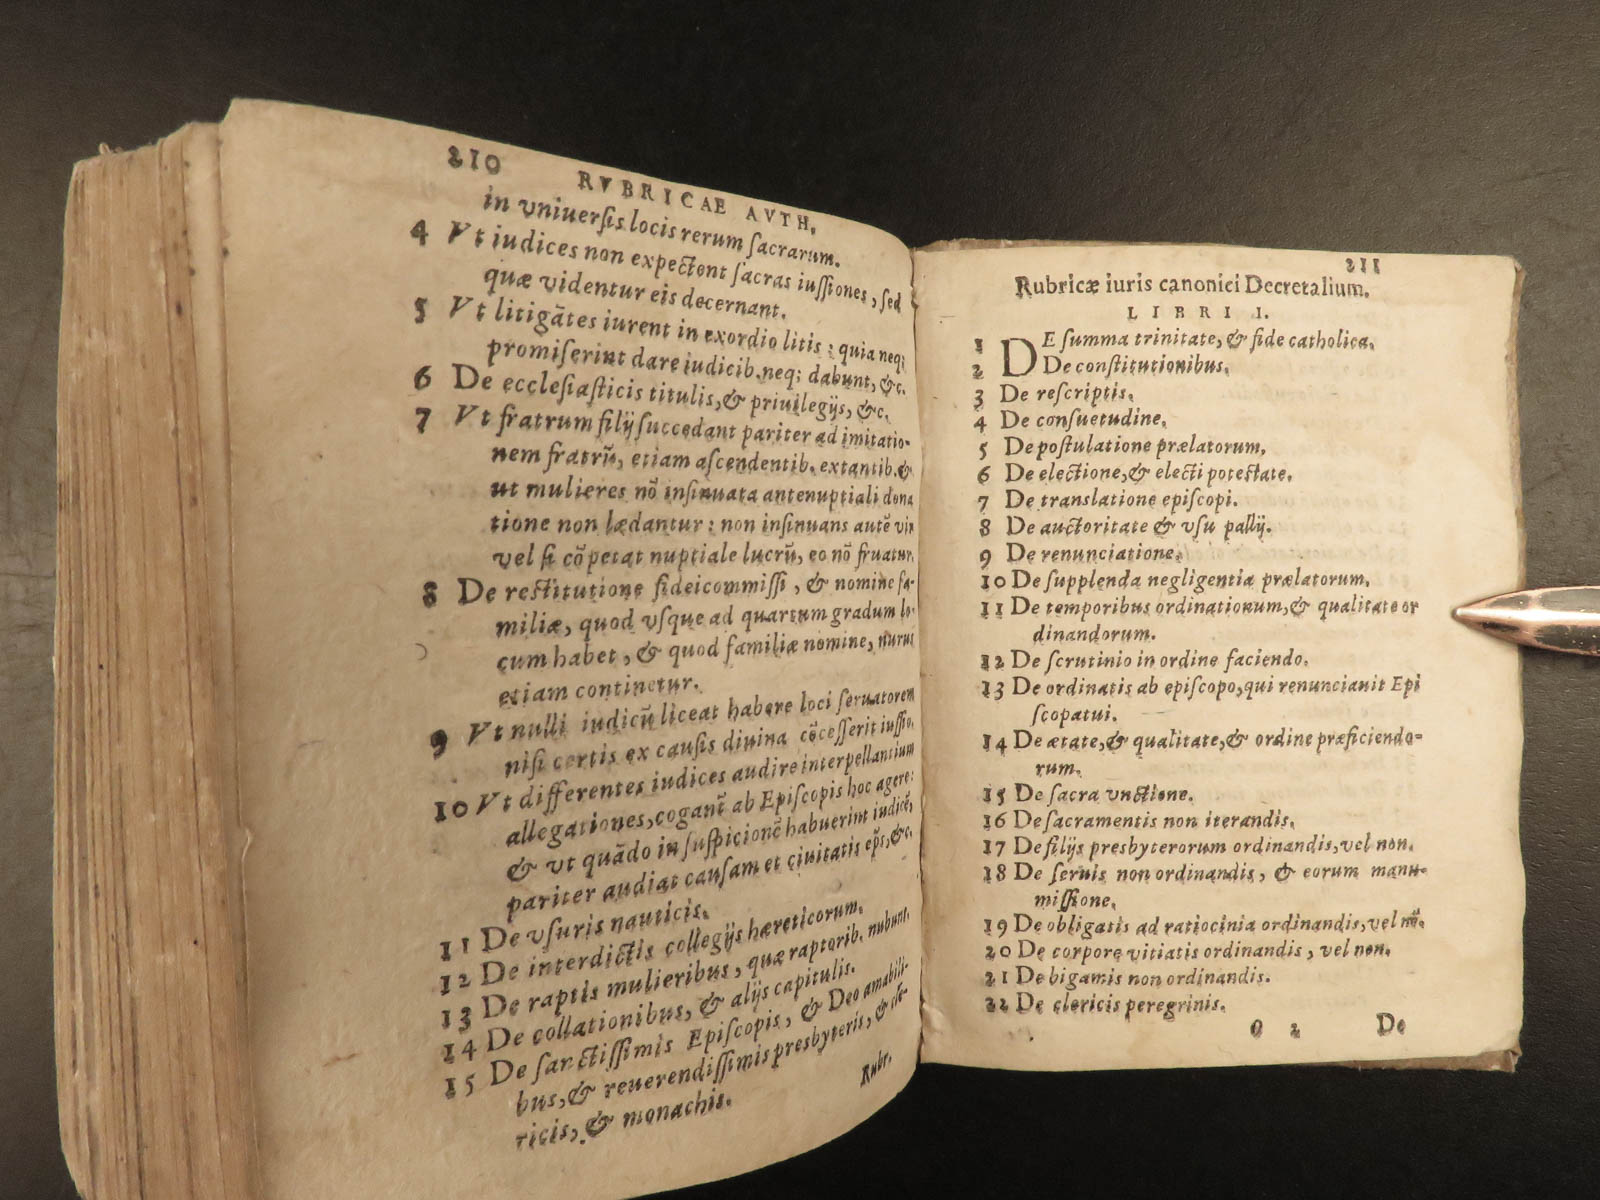 210 RVBRICAE AVTH.
in vniuerſis locis rerum ſacrarum.
4 Vt iudices non expectent ſacras iuſſiones, ſed
quæ videntur eis decernant.
5 Vt litigātes iurent in exordio litis : quia neq;
promiſerint dare iudicib. neq; dabunt, &c.
6 De eccleſiaſticis titulis, & priuilegijs, &c.
7 Vt fratrum filij ſuccedant pariter ad imitatio-
nem fratrū, etiam aſcendentib. extantib. &
ut mulieres nō inſinuata antenuptiali dona
tione non lædantur : non inſinuans autē vir
vel ſi cōpetat nuptiale lucrū, eo nō fruatur.
8 De reſtitutione fideicommiſſi, & nomine fa-
miliæ, quod vſque ad quartum gradum lo-
cum habet, & quod familiæ nomine, nurus
etiam continetur.
9 Vt nulli iudicū liceat habere loci ſeruatorem
niſi certis ex cauſis diuina cōceſſerit iuſſio.
10 Vt differentes iudices audire interpellantium
allegationes, cogant̄ ab Epiſcopis hoc agere:
& vt quādo in ſuſpicionē habuerint iudicē,
pariter audiat cauſam et ciuitatis ep̄s, &c.
11 De vſuris nauticis.
12 De interdictis collegijs hæreticorum.
13 De raptis mulieribus, quæ raptorib. nubunt.
14 De collationibus, & alijs capitulis.
15 De ſanctiſſimis Epiſcopis, & Deo amabili-
bus, & reuerendiſſimis presbyteris, & cle-
ricis, & monachis.
Rubr.
211
Rubricæ iuris canonici Decretalium.
LIBRI I.
1 DE ſumma trinitate, & fide catholica.
2 De conſtitutionibus.
3 De reſcriptis.
4 De conſuetudine.
5 De poſtulatione prælatorum.
6 De electione, & electi poteſtate.
7 De translatione epiſcopi.
8 De auctoritate & vſu pallij.
9 De renunciatione.
10 De ſupplenda negligentia prælatorum.
11 De temporibus ordinationum, & qualitate or
dinandorum.
12 De ſcrutinio in ordine faciendo.
13 De ordinatis ab epiſcopo, qui renunciauit Epi
ſcopatui.
14 De ætate, & qualitate, & ordine præficiendo-
rum.
15 De ſacra vnctione.
16 De ſacramentis non iterandis.
17 De filijs presbyterorum ordinandis, vel non.
18 De ſeruis non ordinandis, & eorum manu-
miſſione.
19 De obligatis ad ratiocinia ordinandis, vel nō.
20 De corpore vitiatis ordinandis, vel non.
21 De bigamis non ordinandis.
22 De clericis peregrinis.
O 2 De